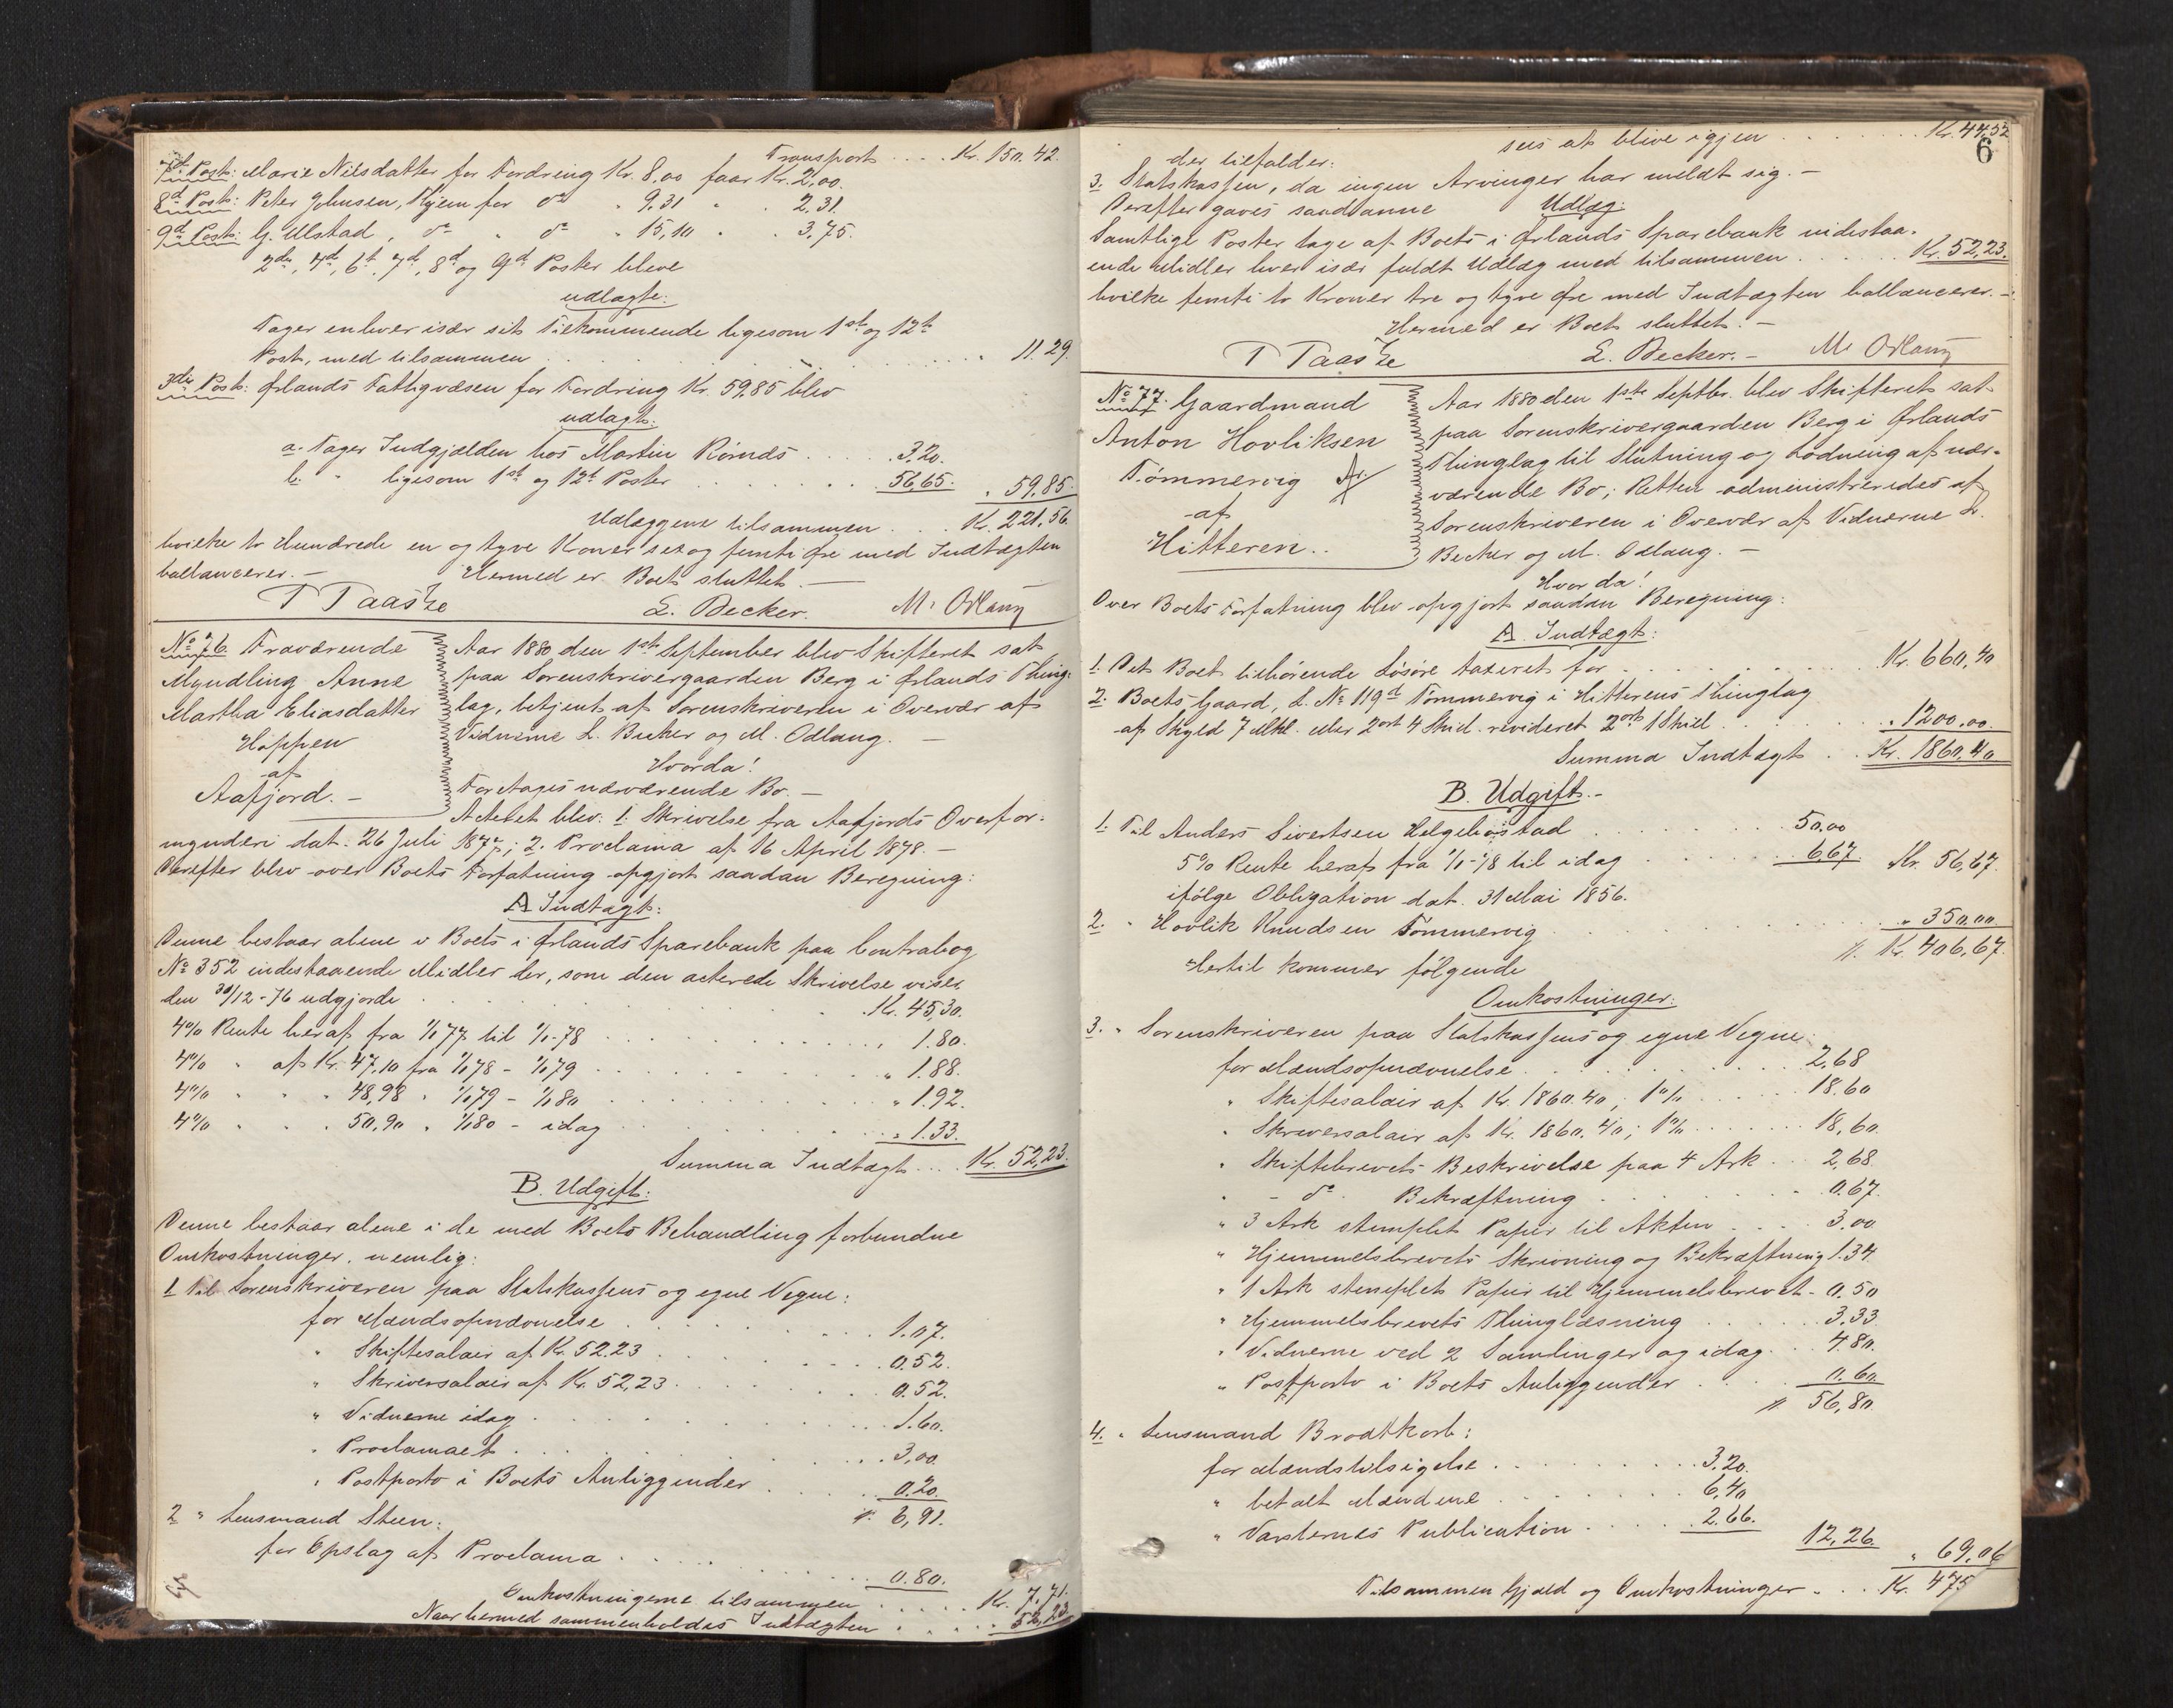 Transport .... Kr. 150.42.
7de Post: Marie Nilsdatter for Fordring Kr. 8,00 faar Kr. 2,00.
8de Post: Peter Johnsen, Hjem for do " 9,31 " . 2,31.
9de Post: G. Ulstad, do " do " 15,10 " . 3,75.
2de, 4de, 6te, 7de, 8de og 9de Poster bleve
udlagte:
Tager enhver især sit Tilkommende ligesom 1ste og 12te
Post, med tilsammen ........ " 11.29.
3die Post: Ørlands Fattigvæsen for Fordring Kr. 59,85 blev
udlagt:
a. Tager Indgjælden hos Martin Rømæs ..... 3,20.
b. " ligesom 1ste og 12te Poster ...... 56,65. " 59,85
Udlæggene tilsammen ... Kr. 221,56.
hvilke to Hundrede en og tyve Kroner sex og femti Øre med Indtægten
ballancerer. — Hermed er Boet sluttet. —
T Taasze L. Becker. M. Odlaug
No 76. Fraværende
Myndling Anne
Martha Eliasdatter
Hoppen
af
Aafjord. —
Aar 1880 den 1ste September blev Skifteret sat
paa Sorenskrivergaarden Berg i Ørlands Thing-
lag, betjent af Sorenskriveren i Overvær af
Vidnerne L. Becker og M. Odlaug. —
Hvorda!
Foretages nærværende Bo. —
Acteret blev: 1. Skrivelse fra Aafjords Overfor-
mynderi dat. 26 Juli 1877; 2. Proclama af 16 April 1878. —
Derefter blev over Boets Forfatning opgjort saadan Beregning:
A Indtægt:
Denne bestaar alene i Boets i Ørlands Sparebank paa Contrabog
No 352 indestaaende Midler der, som den acterede Skrivelse viser
den 30/12-76 udgjorde ....... Kr. 45,30.
4% Rente heraf fra 1/1 77 til 1/1-78 ....... " 1.80.
4% " af Kr. 47,10 fra 1/1 78 - 1/1 79 ....... " 1.88.
4% " " " 48,98 " 1/1 79 - 1/1 80 ....... " 1.92.
4% " " " 50,90 " 1/1 80 - idag ....... " 1.33.
Summa Indtægt ... Kr. 52,23.
B. Udgift:
Denne bestaar alene i de med Boets Behandling forbundne
Omkostninger, nemlig:
1 Til Sorenskriveren paa Statskassens og egne Vegne:
for Mændsopnævnelse ....... 1.07.
" Skiftesalair af Kr. 52.23 ...... 0.52.
" Skriversalair af Kr. 52,23 ...... 0.52.
" Vidnerne idag ....... 1.60.
" Proclamaet ....... 3,00
" Postporto i Boets Anliggender ..... 0.20.
6,91.
2 " Lensmand Steen:
for Opslag af Proclama ....... 0.80.
Omkostningerne tilsammen ..... Kr. 7,71.
Naar hermed sammenholdes Indtægten ..... 52,23
sees at blive igjen ....... Kr. 44,52
6
der tilfalder:
3. Statskassen, da ingen Arvinger har meldt sig. —
Derefter gaves saadanne Udlæg:
Samtlige Poster tage af Boets i Ørlands Sparebank indestaa-
ende Midler hver især fuldt Udlæg med tilsammen ...... Kr. 52,23.
hvilke femti to Kroner tre og tyve Øre med Indtægten ballancerer. —
Hermed er Boet sluttet. —
T Taasze L. Becker. — M. Odlaug
No 77. Gaardmand
Anton Hovliksen
Tømmervig
af
Hitteren..
Aar 1880 den 1ste Septbr. blev Skifteret sat
paa Sorenskrivergaarden Berg i Ørlands
Thinglag til Slutning og Lodning af nær-
værende Bo; Retten administreredes af
Sorenskriveren i Overvær af Vidnerne L.
Becker og M. Odlaug. —
Hvor da!
Over Boets Forfatning blev opgjort saadan Beregning:
A Indtægt:
1. Det Boet tilhørende Løsøre taxeret for ...... Kr. 660,40
2. Boets Gaard, L. No 119d Tømmervig i Hitterens Thinglag
af Skyld 7 Mkl. eller 2 ort 4 Skill. revideret 2 ort 1 Skill ..... " 1200,00.
Summa Indtægt .. Kr. 1860,40
B. Udgift. —
1. Til Anders Sivertsen Helgebostad ...... 50,00
5% Rente heraf fra 1/1-78 til idag ..... 6,67. Kr. 56,67.
ifølge Obligation dat. 31 Mai 1856.
2. " Hovlik Knudsen Tømmervig ....... " 350,00.
Kr. 406,67.
Hertil kommer følgende
Omkostninger:
3. " Sorenskriveren paa Statskassens og egne Vegne
for Mændsopnævnelse ...... 2,68
" Skiftesalair af Kr. 1860.40; 1% ..... 18.60
" Skriversalair af Kr. 1860.40; 1% ...... 18,60.
" Skiftebrevets Beskrivelse paa 4 Ark .. 2,68
" - do. Bekræftning ..... 0.67.
" 3 Ark stemplet Papir til Akten .... 3.00
" Hjemmelsbrevets Skrivning og Bekræftning 1.34
" 1 Ark stemplet Papir til Hjemmelsbrevet - 0.50
" Hjemmelsbrevets Thinglæsning ..... 3.33.
" Vidnerne ved 2 Samlinger og idag ... 4.80.
" Postporto i Boets Anliggender ... 0.60
56,80.
4. " Lensmand Brodtkorb:
for Mændstilsigelse ...... 3.20.
" betalt Mændene ...... 6,40
" Varslernes Publication ..... 2.66.
12,26 " 69,06
Tilsammen Gjæld og Omkostninger ... Kr. 475